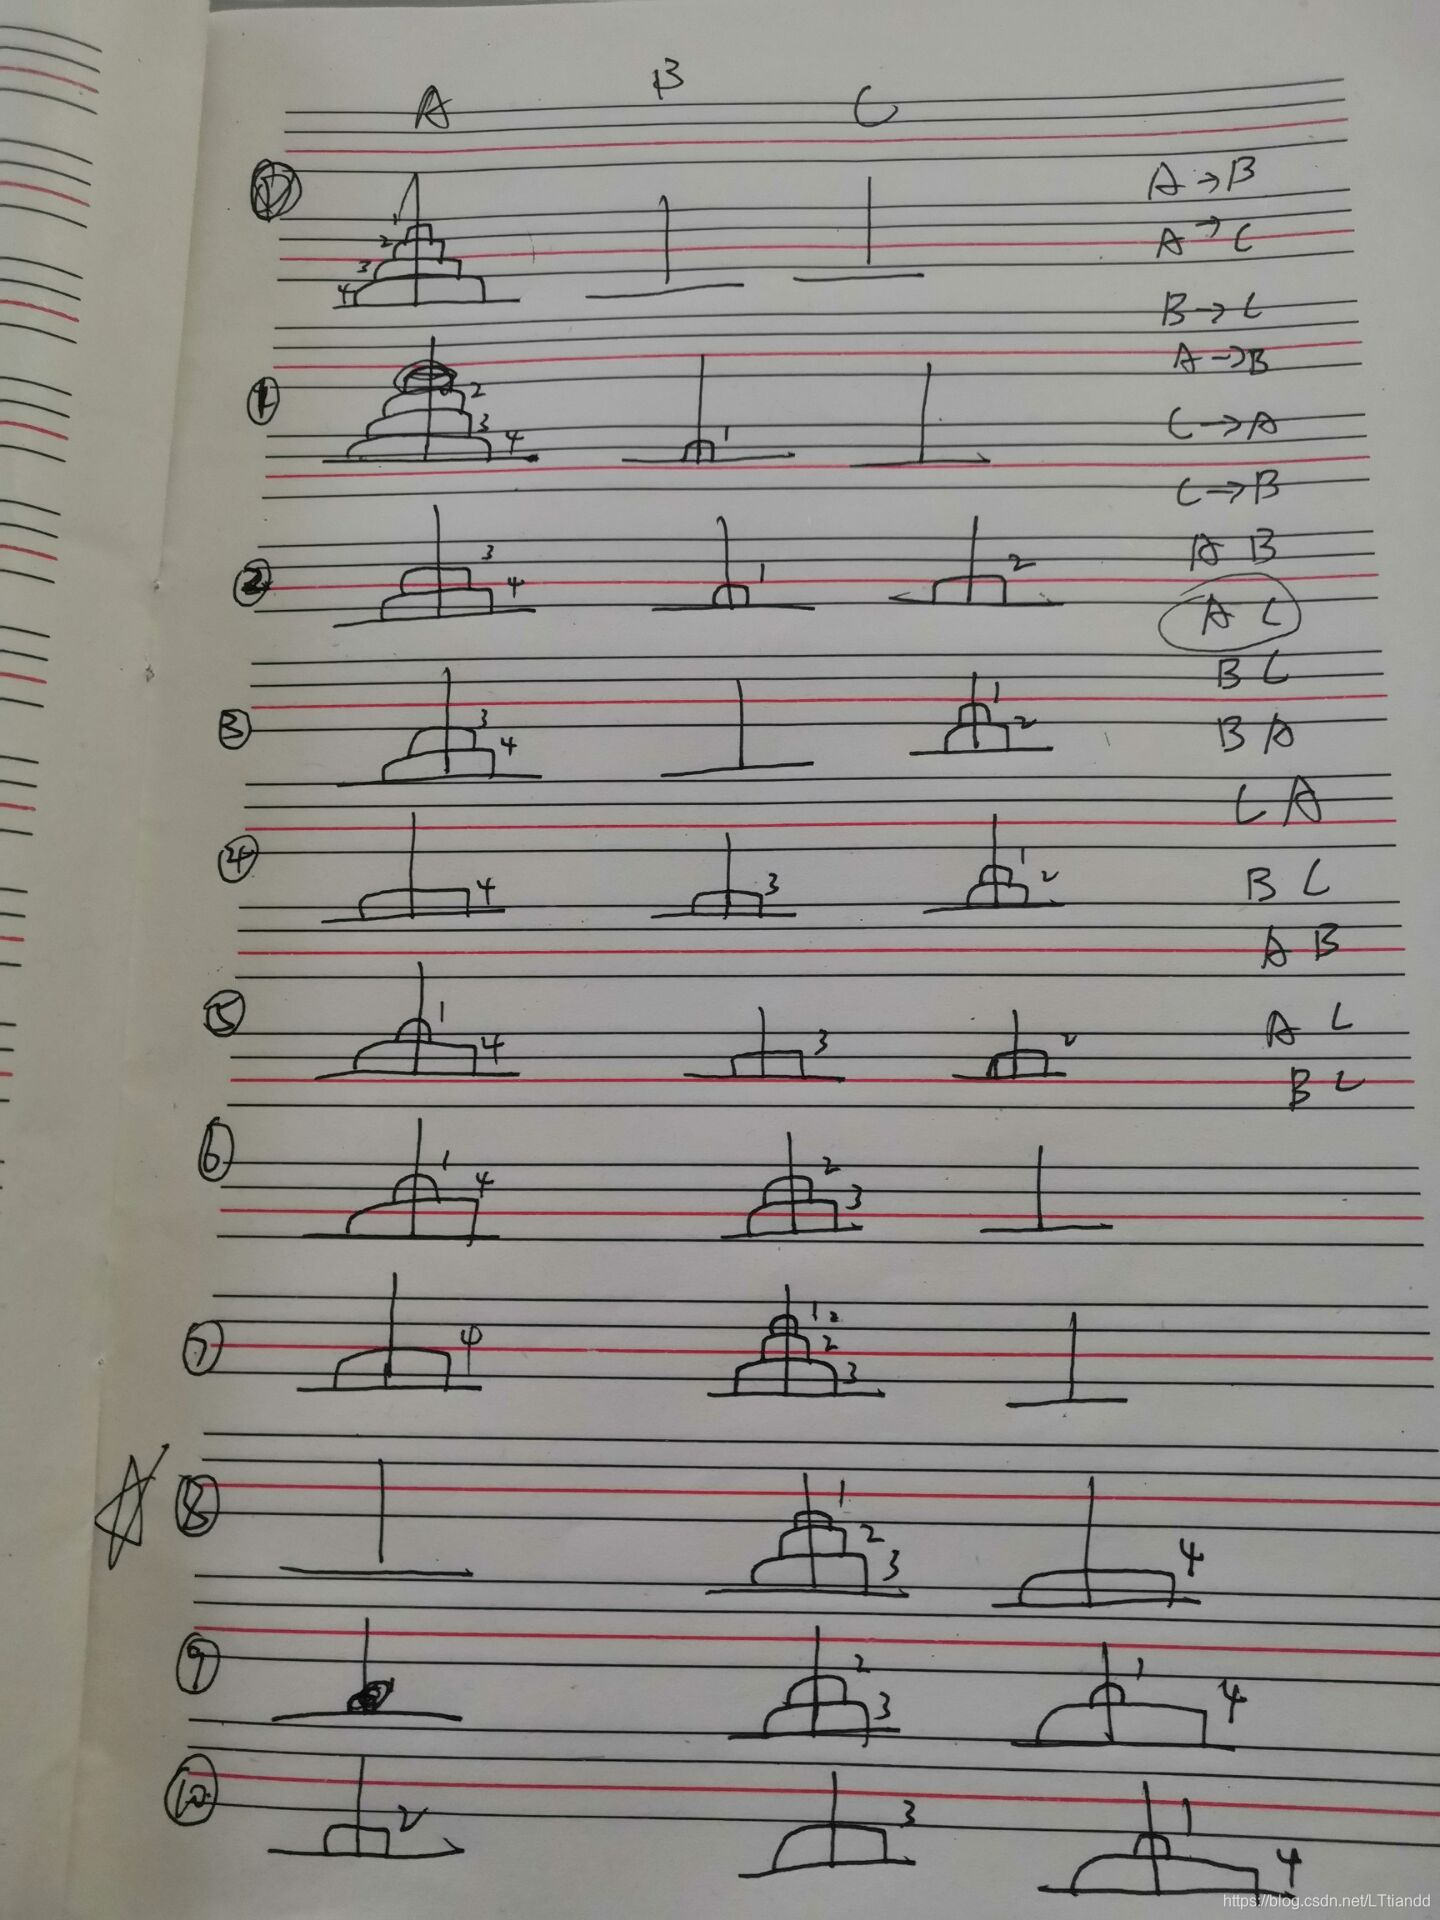 A B C
A → B
1
2
3
4
A → C
B → C
A → B
1 2 3 4 1
C → A
C → B
2 3 4 1 2
A B
A C
B C
3 3 4 1 2
B A
C A
4 4 3 1 2
B C
A B
5 1 4 3 2
A C
B C
6 1 4 2 3
7 4 1 2 2 3
8 1 2 3 4
9 2 3 1 4
10 2 3 1 4
https://blog.csdn.net/LTtiandd